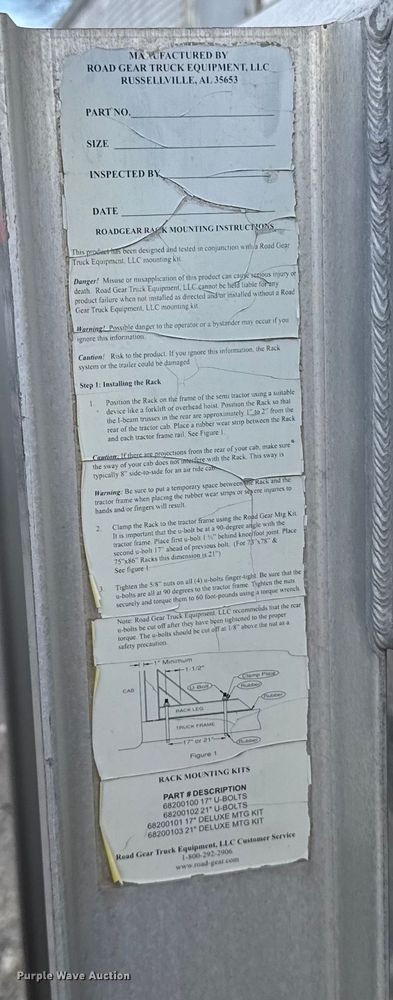 MANUFACTURED BY
ROAD GEAR TRUCK EQUIPMENT, LLC
RUSSELLVILLE, AL 35653
PART NO.
SIZE
INSPECTED BY
DATE
ROADGEAR RACK MOUNTING INSTRUCTIONS
This product has been designed and tested in conjunction with a Road Gear
Truck Equipment, LLC mounting kit.
Danger! Misuse or misapplication of this product can cause serious injury or
death. Road Gear Truck Equipment, LLC cannot be held liable for any
product failure when not installed as directed and/or installed without a Road
Gear Truck Equipment, LLC mounting kit.
Warning! Possible danger to the operator or a bystander may occur if you
ignore this information.
Caution! Risk to the product. If you ignore this information, the Rack
system or the trailer could be damaged
Step 1: Installing the Rack
1. Position the Rack on the frame of the semi tractor using a suitable
device like a forklift of overhead hoist. Position the Rack so that
the I-beam trusses in the rear are approximately 1" to 2" from the
rear of the tractor cab. Place a rubber wear strip between the Rack
and each tractor frame rail. See Figure 1.
Caution: If there are projections from the rear of your cab, make sure
the sway of your cab does not interfere with the Rack. This sway is
typically 8" side-to-side for an air ride cab.
Warning: Be sure to put a temporary space between the Rack and the
tractor frame when placing the rubber wear strips or severe injuries to
hands and/or fingers will result.
2. Clamp the Rack to the tractor frame using the Road Gear Mtg Kit.
It is important that the u-bolt be at a 90-degree angle with the
tractor frame. Place first u-bolt 1 ½" behind knee/foot joint. Place
second u-bolt 17" ahead of previous bolt. (For 73"x78" &
75"x86" Racks this dimension is 21")
See figure 1
3. Tighten the 5/8" nuts on all (4) u-bolts finger-tight. Be sure that the
u-bolts are all at 90 degrees to the tractor frame. Tighten the nuts
securely and torque them to 60 foot-pounds using a torque wrench.
Note: Road Gear Truck Equipment, LLC recommends that the rear
u-bolts be cut off after they have been tightened to the proper
torque. The u-bolts should be cut off at 1/8" above the nut as a
safety precaution.
1" Minimum
1-1/2"
Clamp Plate
CAB
U Bolt
Rubber
Rubber
RACK LEG
TRUCK FRAME
17" or 21"
Rubber
Figure 1
RACK MOUNTING KITS
PART # DESCRIPTION
68200100 17" U-BOLTS
68200102 21" U-BOLTS
68200101 17" DELUXE MTG KIT
68200103 21" DELUXE MTG KIT
Road Gear Truck Equipment, LLC Customer Service
1-800-292-2906
www.road-gear.com
Purple Wave Auction